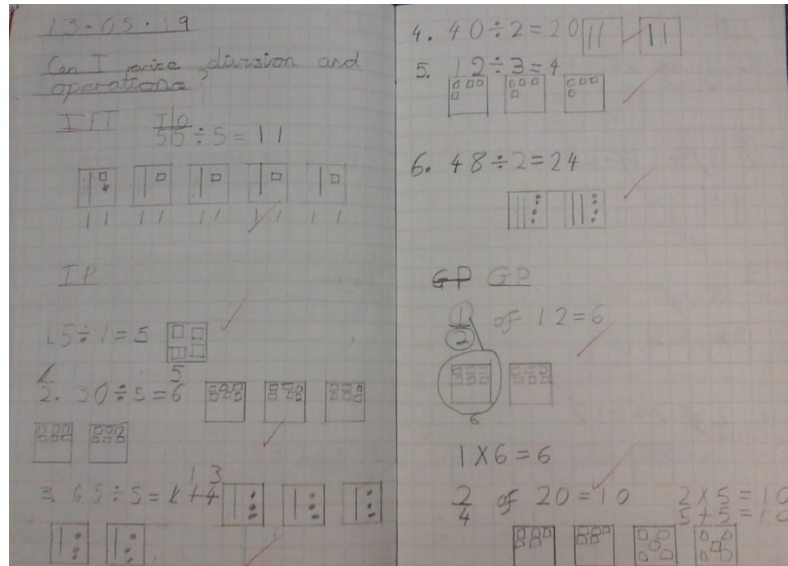 13.05.19
Can I revise division and
operations?
IIT TO
55÷5=11
11 11 11 11 11
IP
1. 5÷1=5
5
2. 30÷5=6
1 3
3. 65÷5=
4. 40÷2=20
5. 12÷3=4
6. 48÷2=24
GP GP
1/2 of 12=6
6
1×6=6
2/4 of 20=10 2×5=10
5+5=10